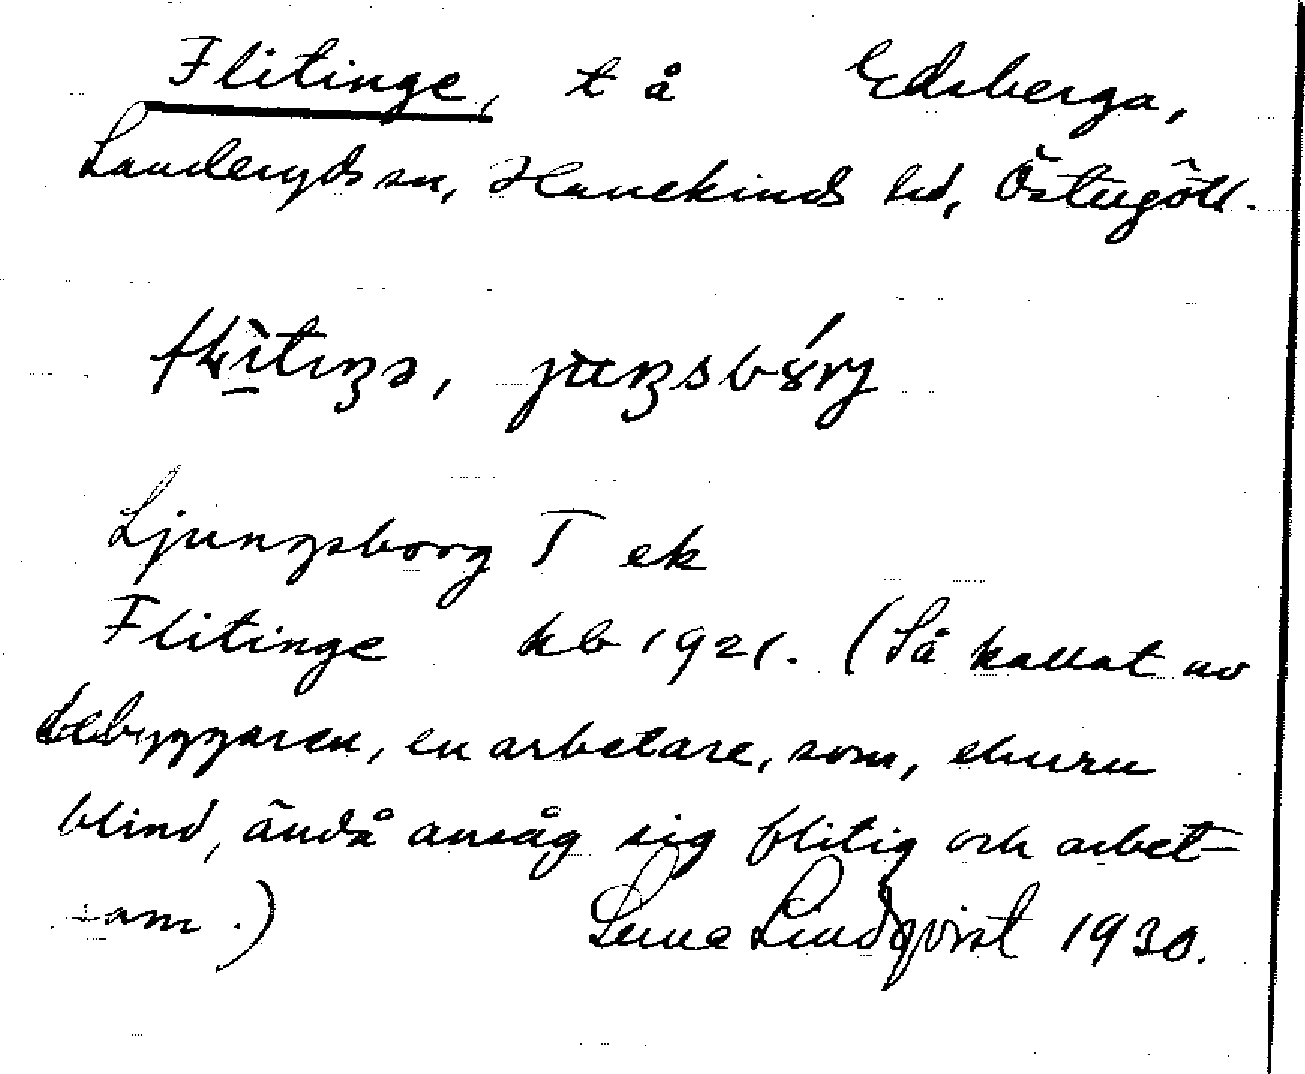 Flitinge, t å Edsberga,
Landeryds sn, Hanekinds hd, Östergötl.
Ljungsborg T ek
Flitinge kb 1921. (Så kallat av
bebyggaren, en arbetare, som, ehuru
blind, ändå ansåg sig flitig och arbet-
sam.) Sune Lindqvist 1930.